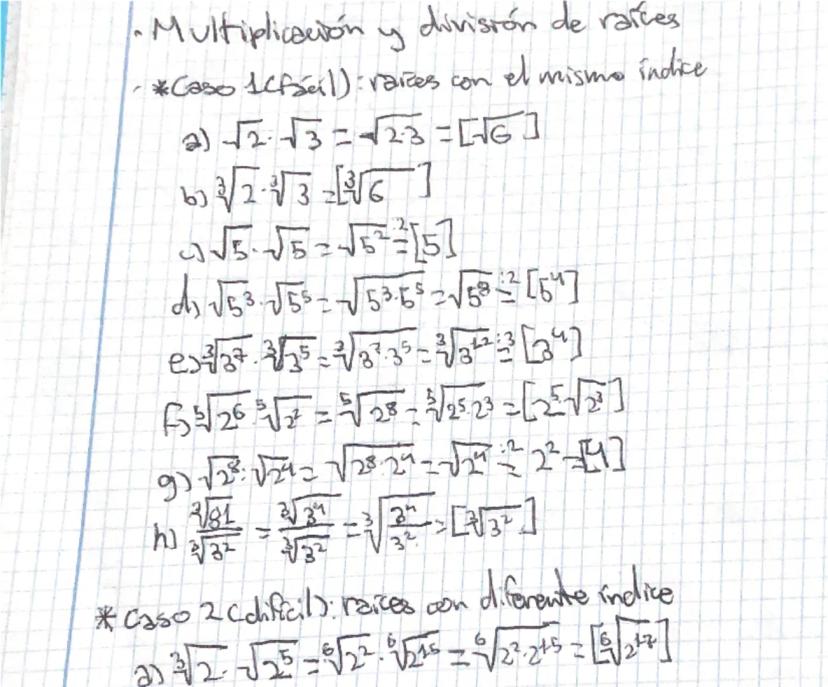 · Multiplicación y división de raíces
· *Caso 1 (fácil): raíces con el mismo índice
a) √2 · √3 = √2·3 = [√6]
b) ³√2 · ³√3 = [³√6]
c) √5 · √5 = √5² =:2 [5]
d) √5³ · √5⁵ = √5³·5⁵ = √5⁸ =:2 [5⁴]
e) ³√3⁷ · ³√3⁵ = ³√3⁷·3⁵ = ³√3¹² =:3 [3⁴]
f) ⁵√2⁶ · ⁵√2² = ⁵√2⁸ = ⁵√2⁵·2³ = [2 ⁵√2³]
g) √2⁸ : √2⁴ = √2⁸:2⁴ = √2⁴ =:2 2² = [4]
h) ³√81 / ³√3² = ³√3⁴ / ³√3² = ³√(3⁴/3²) = [³√3²]
* Caso 2 (difícil): raíces con diferente índice
a) ³√2 · √2⁵ = ⁶√2² · ⁶√2¹⁵ = ⁶√2²·2¹⁵ = [⁶√2¹⁷]